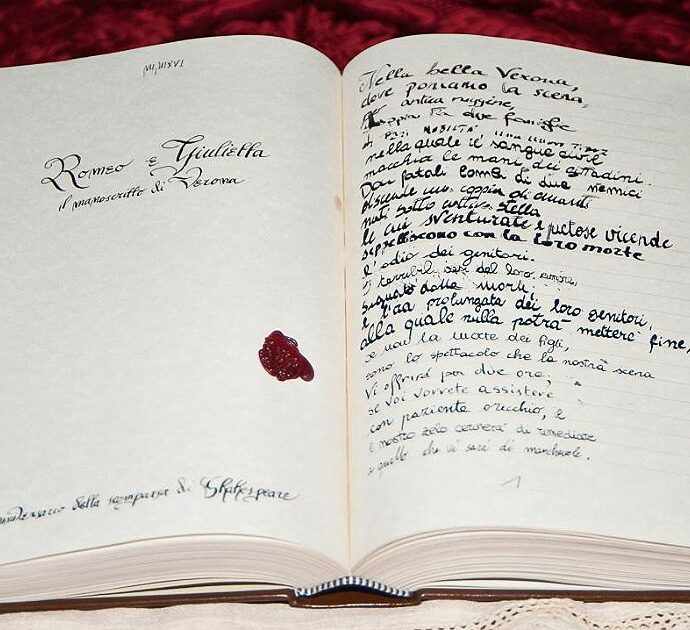 Romeo e Giulietta
il manoscritto di Verona
della scomparsa di Shakespeare
Nella bella Verona,
dove poniamo la scena,
antica ruggine,
due famiglie
di pari nobiltà
nella quale il sangue civil
macchia le mani dei cittadini.
Dai fatali lombi di due nemici
discende una coppia di amanti
nati sotto cattiva stella
le cui sventurate e pietose vicende
seppelliscono con la loro morte
l'odio dei genitori.
del loro amore,
segnato dalla morte,
e l'ira prolungata dei loro genitori,
alla quale nulla potrà mettere fine,
se non la morte dei figli,
sono lo spettacolo che la nostra scena
vi offrirà per due ore,
se voi vorrete assistere
con paziente orecchio, e
nostro zelo cercerà di rimediare
a quello che vi sarà di manchevole.
1